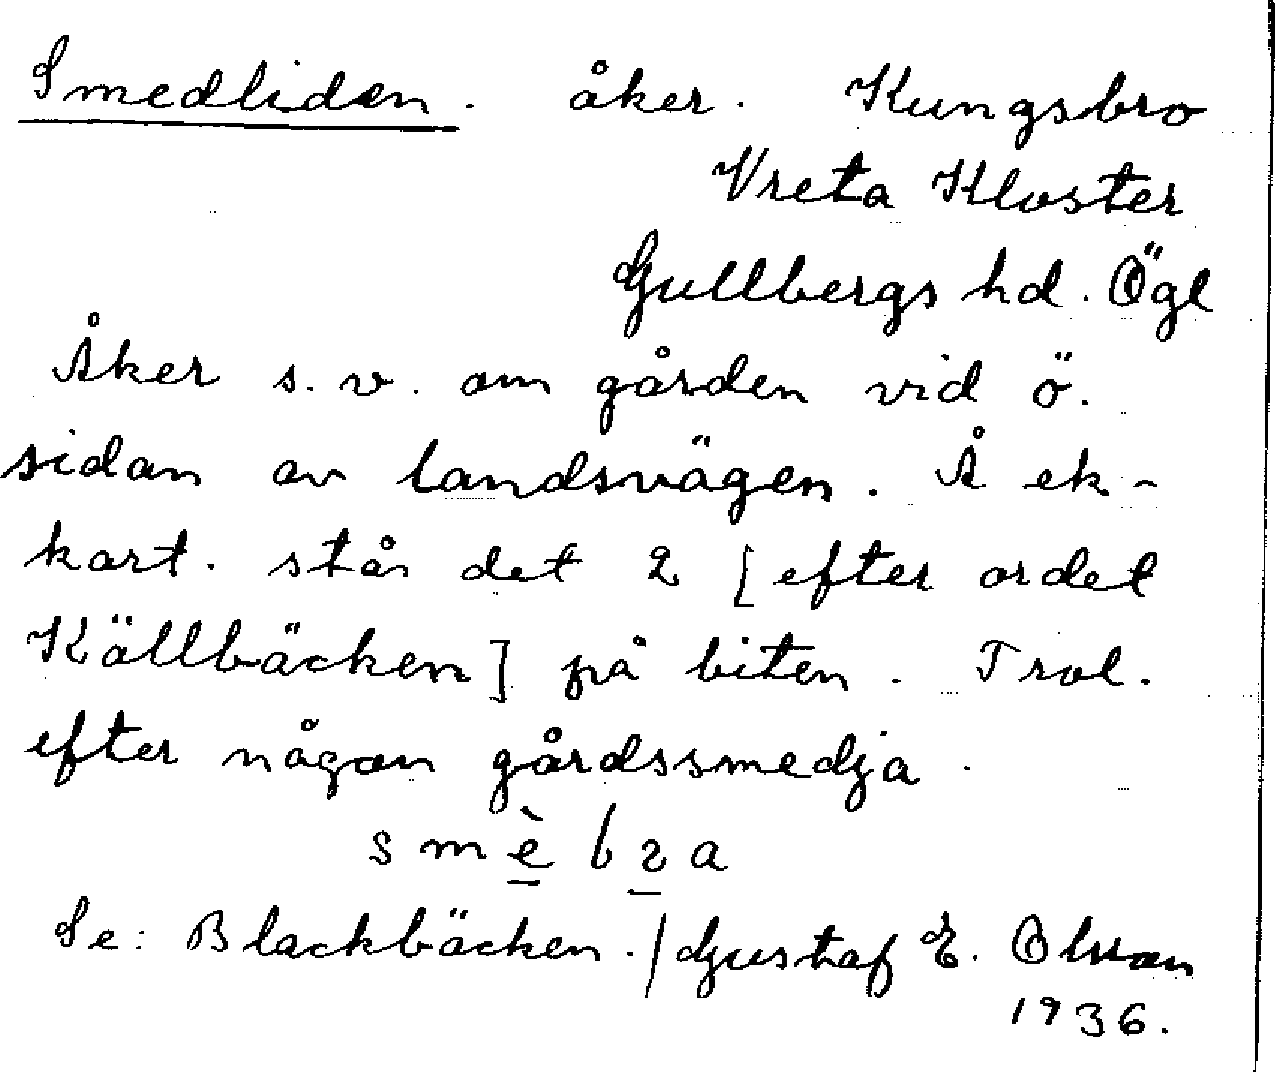 Smedliden. åker. Kungsbro
Vreta Kloster
Gullbergs hd. Ögl
Åker s.v. om gården vid ö.
sidan av landsvägen. Å ek-
kart. står det 2 [efter ordet
Källbäcken] på biten. Trol.
efter någon gårdssmedja.
Se: Blackbäcken. / Gustaf E. Olsson
1936.